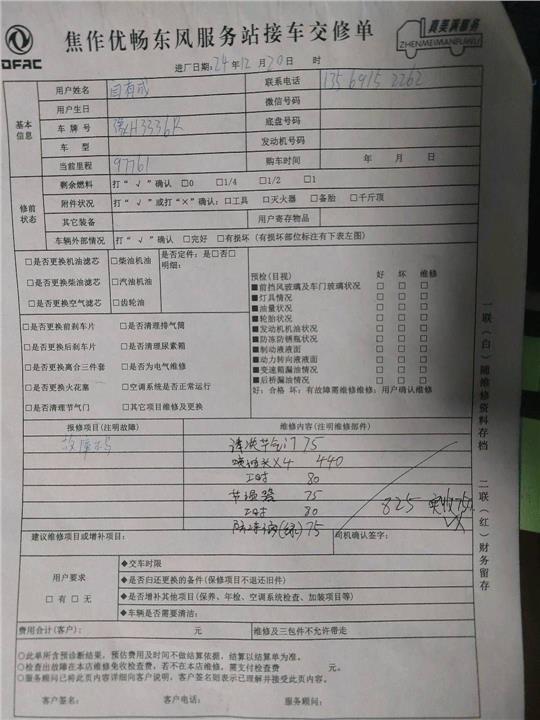 DFAC
焦作优畅东风服务站接车交修单
真美满服务
ZHENMEIMANFUWU
进厂日期:24年12月20日 时
基本信息
用户姓名 联系电话 13569152262
用户生日 微信号码
车牌号 豫H3336K 底盘号码
车型 发动机号码
当前里程 97761 购车时间 年 月 日
修前状态
剩余燃料 打“√”确认 □0 □1/4 □1/2 □1
附件状况 打“√”或打“×”确认:□工具 □灭火器 □备胎 □千斤顶
其它装备 用户寄存物品
车辆外部情况 打“√”确认 □完好 □有损坏(有损坏部位标注有下表左图)
□是否更换机油滤芯 □柴油机油
□是否更换柴油滤芯 □汽油机油
□是否更换空气滤芯 □齿轮油
是否定件:是□否□
明细:
□是否更换前刹车片 □是否清理排气筒
□是否更换后刹车片 □是否清理尿素箱
□是否更换离合三件套 □是否为电气维修
□是否更换火花塞 □空调系统是否正常运行
□是否清理节气门 □其它项目维修及更换
预检(目视) 好 坏 维修
■前挡风玻璃及车门玻璃状况 □ □ □
■灯具情况 □ □ □
■油量状况 □ □ □
■轮胎状况 □ □ □
■发动机机油状况 □ □ □
■防冻防锈瓶状况 □ □ □
■制动液液面 □ □ □
■动力转向液液面 □ □ □
■变速箱漏油情况 □ □ □
■后桥漏油情况 □ □ □
好:合格 坏:有故障需维修维修:用户确认维修
报修项目(注明故障) 维修内容(注明维修部件)
故障码 清洗节气门 75
喷油长×4 440
工时 80
节温器 75
工时 80
防冻液(绿) 75
825 实收750
建议维修项目或增补项目: 司机确认签字:
用户要求
□有 □无
◆交车时限
◆是否归还更换的备件(保修项目不退还旧件)
◆是否增补其他项目(保养、年检、空调系统检查、加装项目等)
◆车辆是否需要清洁:
费用合计(客户): 元 维修及三包件不允许带走
○此单所含预诊断结果,预估费用及时间不做结算依据,结算以结算单为准。
○检查出故障在本店维修免收检查费,若不在本店维修,需支付检查费 元。
○服务顾问已将此页内容详细向客户说明,客户签名则表示已理解并接受此页内容。
客户签名: 客户电话: 服务顾问:
一联(白)随维修资料存档
二联(红)财务留存